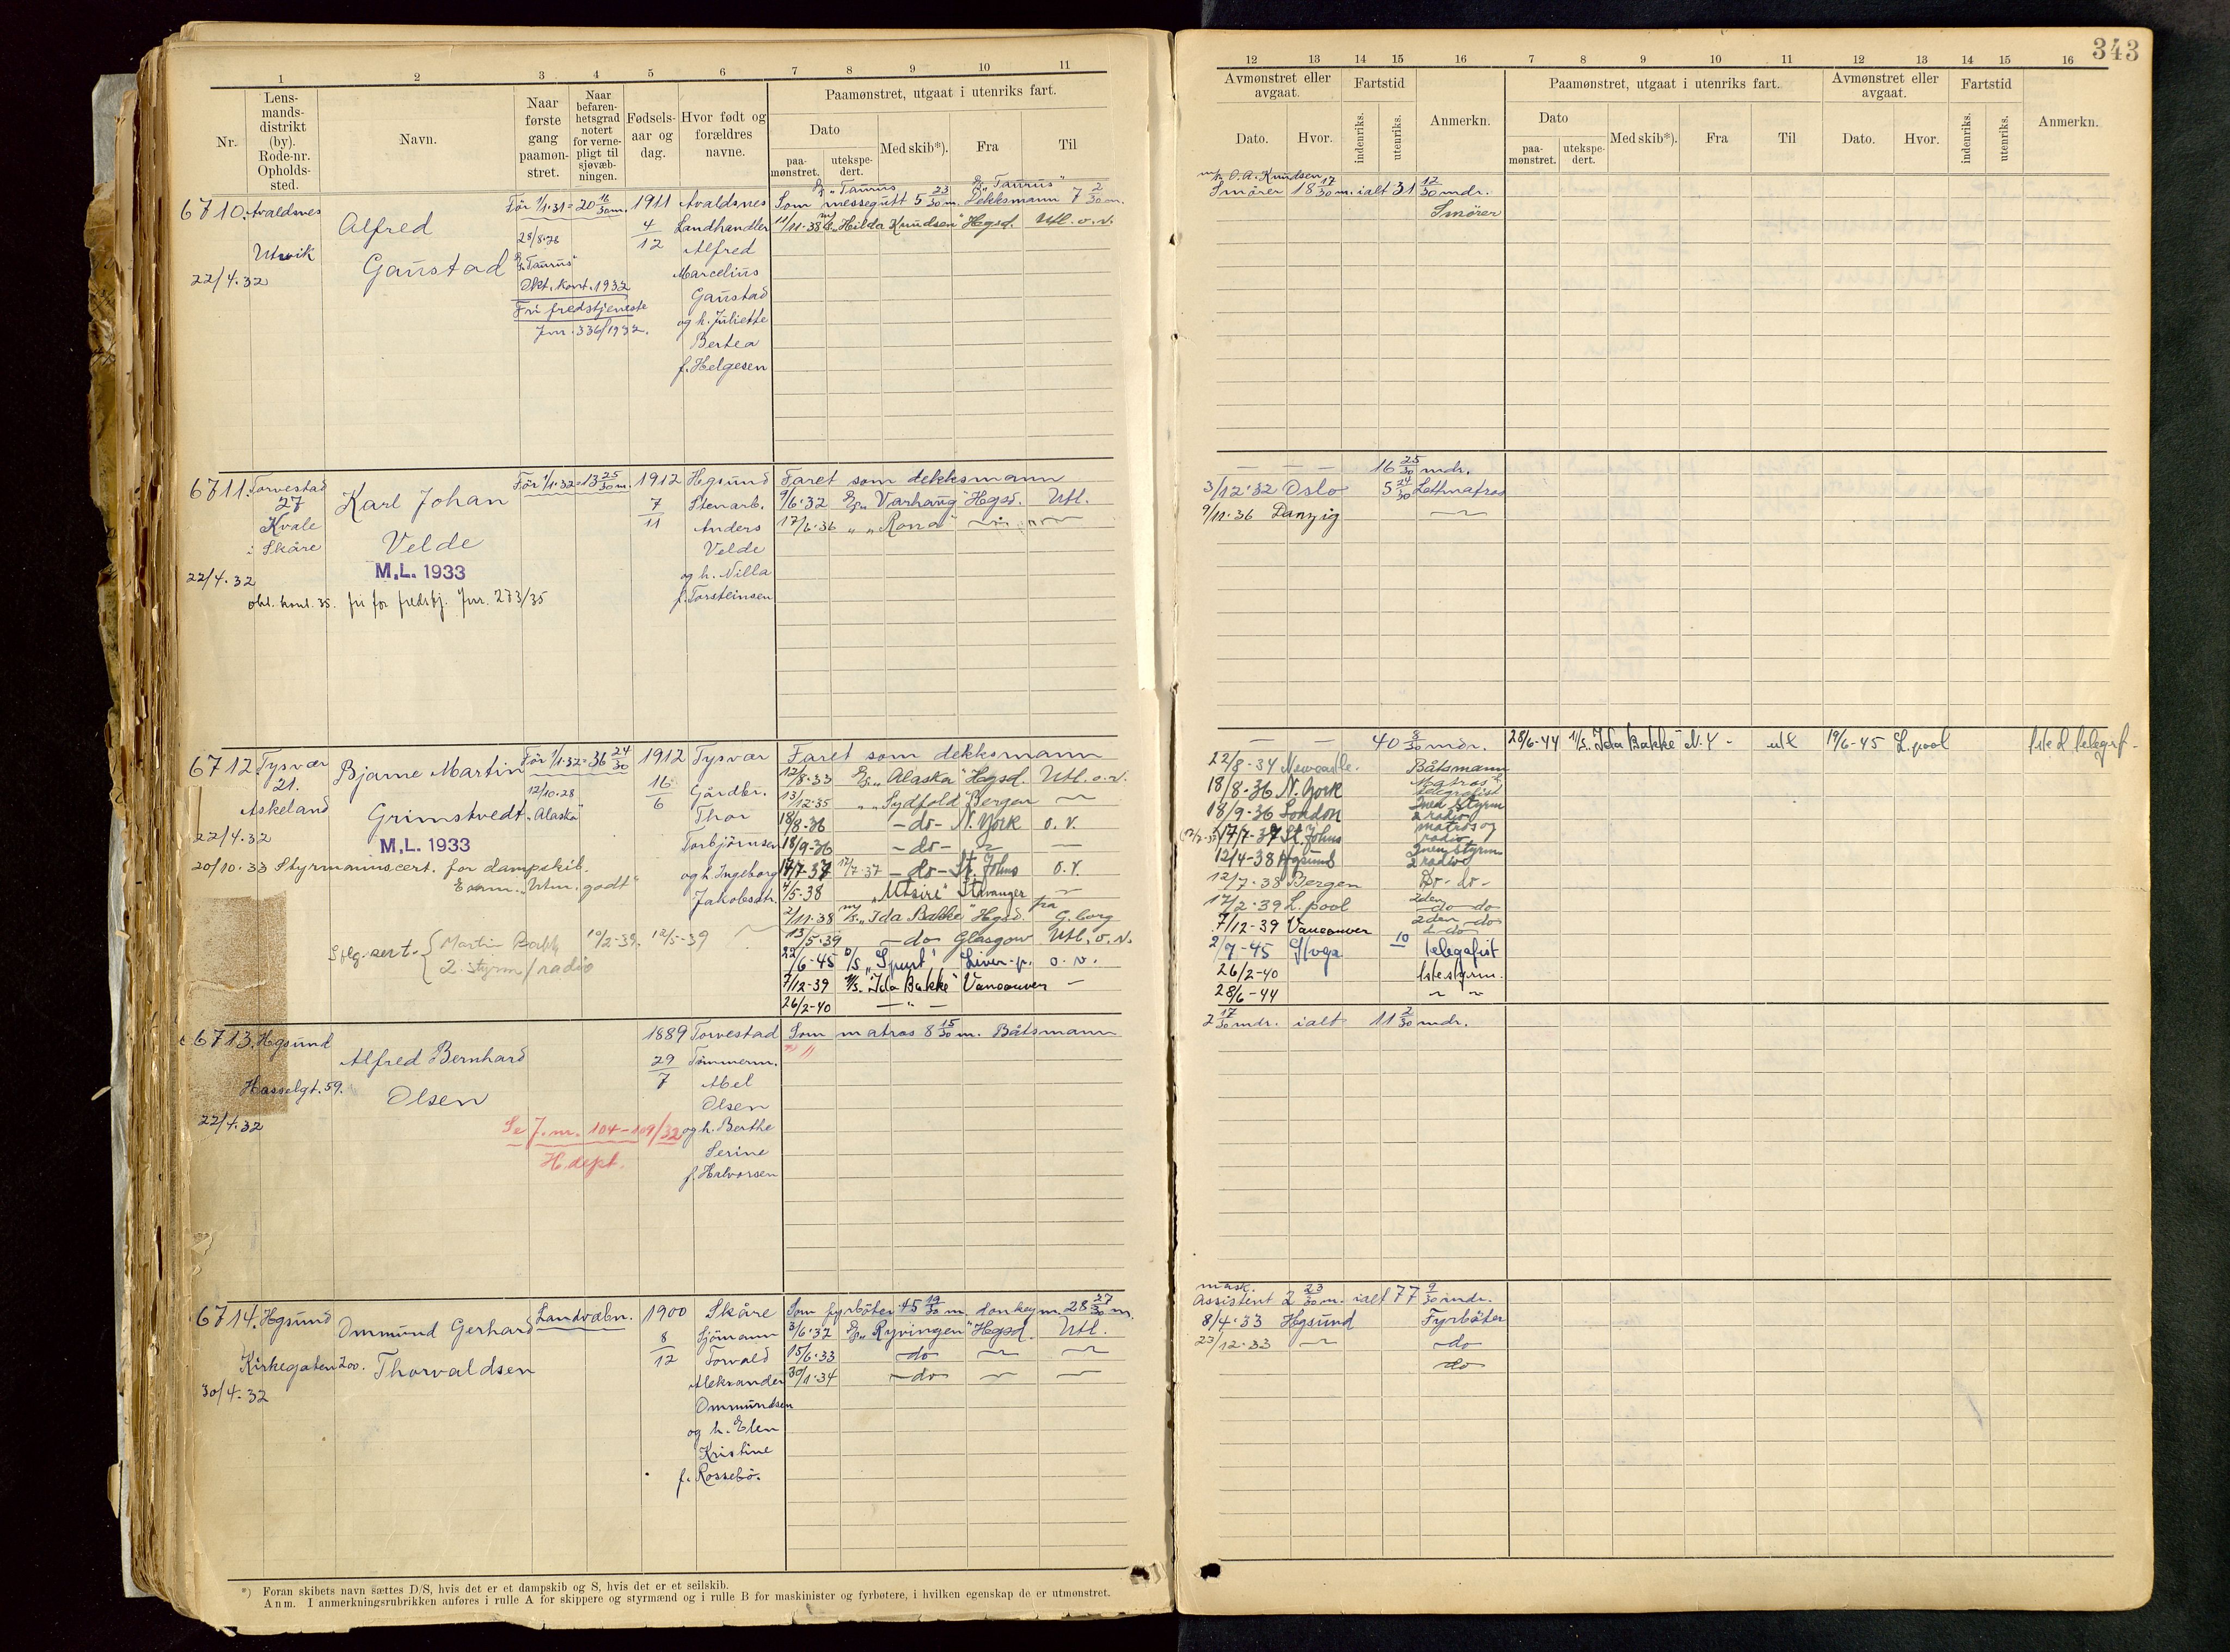 343
1 2 3 4 5 6 7 8 9 10 11
12 13 14 15 16 7 8 9 10 11 12 13 14 15 16
Nr.
Lens-
mands-
distrikt
(by).
Rode-nr.
Opholds-
sted.
Navn.
Naar
første
gang
paamøn-
stret.
Naar
befaren-
hetsgrad
notert
for verne-
pligt til
sjøvæb-
ningen.
Fødsels-
aar og
dag.
Hvor født og
forældres
navne.
Paamønstret, utgaat i utenriks fart.
Dato
paa-
mønstret.
utekspe-
dert.
Med skib*).
Fra
Til
Avmønstret eller
avgaat.
Dato. Hvor.
Fartstid
indenriks.
utenriks.
Anmerkn.
Paamønstret, utgaat i utenriks fart.
Dato
paa-
mønstret.
utekspe-
dert.
Med skib*).
Fra
Til
Avmønstret eller
avgaat.
Dato. Hvor.
Fartstid
indenriks.
utenriks.
Anmerkn.
6710. Avaldsnes
Utvik
22/4.32
Alfred
Gaustad
Før 1/1.31 = 20 16/30 m.
28/8.28
"Taurus"
Okt. kont. 1932
Fri fredstjeneste
Jnr. 336/1932.
1911
4/12
Avaldsnes
Landhandler
Alfred
Marcelius
Gaustad
og h. Juliette
Bertea
f. Helgesen
"Taurus" "Taurus"
Som messegutt 5 23/30 m. Dekksmann 7 2/30 m.
11/11.38 "Hilda Knudsen" Hgsd. Utl. o. v.
O. A. Knudsen
Smører 18 17/30 m. ialt 31 12/30 mdr.
Smører
6711. Torvestad
27
Kvale
i Skåre
22/4.32
Karl Johan
Velde
M.L. 1933
okt. kont. 35. fri for fredstj. Jnr. 273/35
Før 1/1.32 = 13 25/30 m.
1912
7/11
Hgsund
Stenarb.
Anders
Velde
og h. Nilla
f. Torsteinsen
Faret som dekksmann
9/6.32 "Varhaug" Hgsd. Utl.
17/6.36 " "Rona" — " —
— — — 16 25/30 mdr.
3/12.32 Oslo 5 24/30 Lettmatros
9/11.36 Danzig —
6712. Tysvær
21.
Askeland
22/4.32
Bjarne Martin
Grimstvedt
M.L. 1933
20/10.33 Styrmannscert. for dampskib.
Exam. "Utm. godt"
Martin Bakk 10/2-39. 12/5-39
2. styrm/radio
Før 1/1.32 = 36 24/30
12/10.28
"Alaska"
1912
16/6
Tysvær
Gårdbr.
Thor
Torbjørnsen
og h. Ingeborg
Jakobsdtr.
Faret som dekksmann
12/8.33 "Alaska" Hgsd. Utl. o. v.
13/12.35 " "Sydfold" Bergen —
18/8-36 — do — N. York o. v.
18/9-36 — do — — —
17/7-37 17/7-37 — do — St. Johns o. v.
4/5-38 "Utsire" Stavanger —
2/11.38 "Ida Bakke" Hgsd. fra G.borg
13/5.39 — do Glasgow Utl. o. v.
22/6-45 D/S "Spurt" Liver-p. o. v.
7/12-39 M/S. "Ida Bakke" Vancouver —
26/2-40 — " —
— — 40 8/30 mdr.
22/8-34 Newcastle. Båtsmann
18/8-36 N. York Matros & telegrafist
18/9-36 London 2nen styrm & radio
17/7-37 St. Johns matros og radio
12/4-38 Hgsund 2nen styrm & radio
12/7.38 Bergen Do - do -
17/2.39 L.pool 2den do do
7/12-39 Vancouver 2den do & do
2/7-45 10 telegrafist
26/2-40 1ste styrm.
28/6-44 — —
28/6-44 "Ida Bakke" N.Y - utl 19/6-45 L.pool
6713. Hgsund
Hasselgt. 59.
22/4.32
Alfred Bernhard
Olsen
Se J. nr. 104-109/32
H. dept.
1889
29/7
Torvestad
Tømmerm.
Abel
Olsen
og h. Berthe
Serine
f. Halvorsen
Som matros 8 15/30 m. Båtsmann
2 17/30 mdr. ialt 11 2/30 mdr.
6714. Hgsund
Kirkegaten 200.
30/4.32
Ommund Gerhard
Thorvaldsen
Landvæbn.
1900
8/12
Skåre
Sjømann
Torvald
Aleksander
Ommundsen
og h. Elen
Kristine
f. Rossebø.
Som fyrbøter 45 19/30 m. donkeym. 28 27/30 m.
3/6.32 "Ryvingen" Hgsd. Utl.
15/6.33 — do — —
30/1.34 — do — —
mask.
Assistent 2 23/30 m. ialt 77 9/30 mdr.
8/4.33 Hgsund Fyrbøter
23/12.33 — do
do
*) Foran skibets navn sættes D/S, hvis det er et dampskib og S, hvis det er et seilskib.
Anm. I anmerkningsrubrikken anføres i rulle A for skippere og styrmænd og i rulle B for maskinister og fyrbøtere, i hvilken egenskap de er utmønstret.